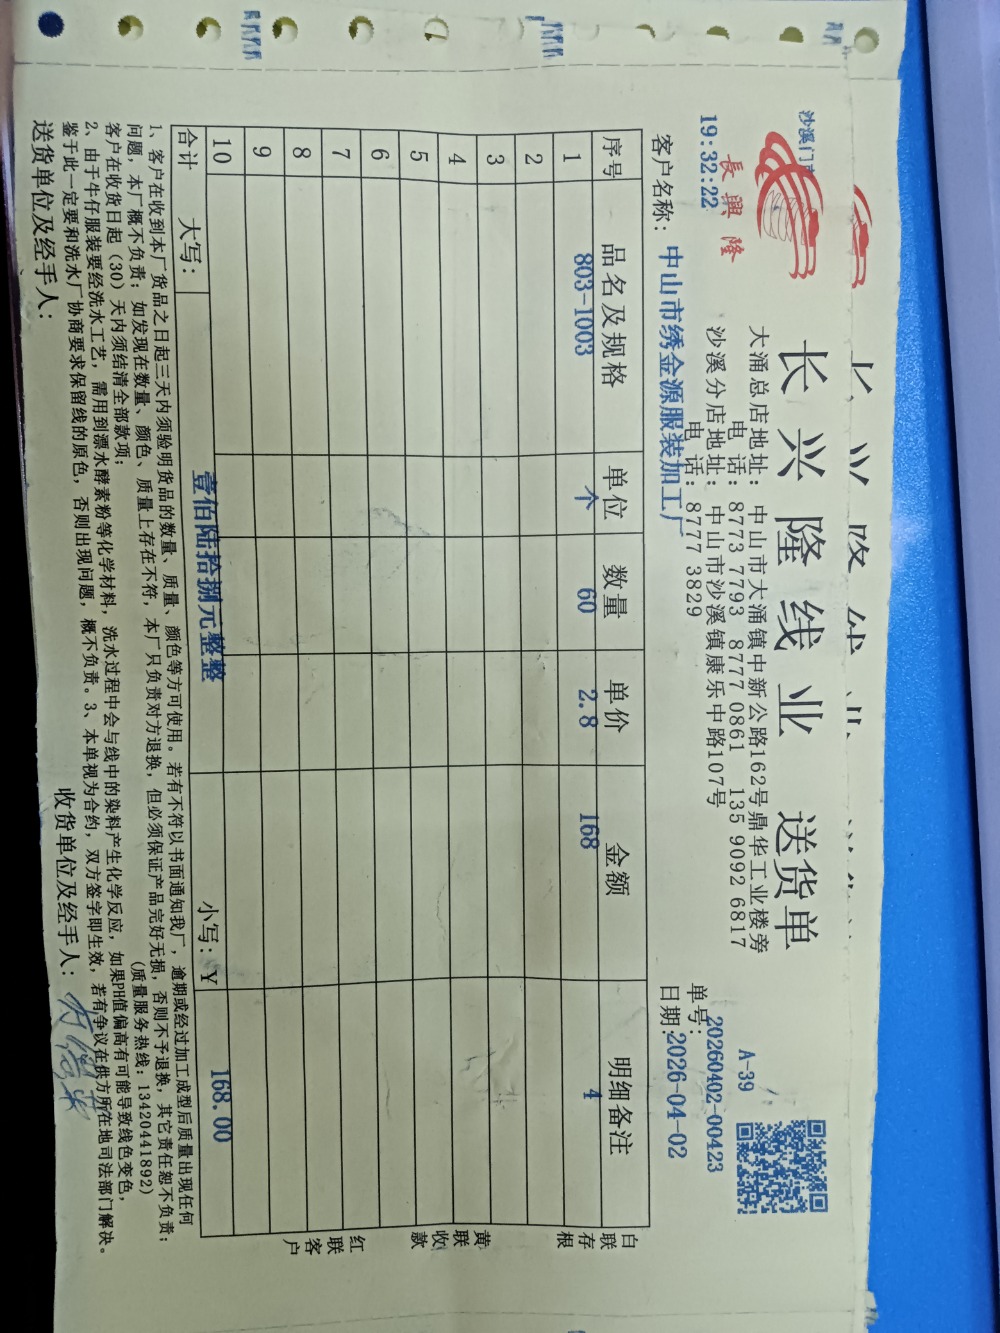 沙溪门市
長興隆
19:32:22
长兴隆线业 送货单
大涌总店地址：中山市大涌镇中新公路162号鼎华工业楼旁
电 话：8773 7793 8777 0861 135 9092 6817
沙溪分店地址：中山市沙溪镇康乐中路107号
电 话：8777 3829
A-39
单号：20260402-00423
客户名称：中山市绣金源服装加工厂
日期：2026-04-02
序号 品名及规格 单位 数量 单价 金额 明细备注
1 803-1003 个 60 2.8 168 4
2
3
4
5
6
7
8
9
10
合计 大写：壹佰陆拾捌元整整 小写：Y 168.00
白联存根
黄联收款
红联客户
1、客户在收到本厂货品之日起三天内须验明货品的数量、质量、颜色等方可使用。若有不符以书面通知我厂，逾期或经过加工成型后质量出现任何
问题，本厂概不负责；如发现在数量、颜色、质量上存在不符，本厂只负责对方退换，但必须保证产品完好无损，否则不予退换，其它责任恕不负责；
客户在收货日起（30）天内须结清全部款项； (质量服务热线：13420441892)
2、由于牛仔服装要经洗水工艺，需用到漂水酵素粉等化学材料，洗水过程中会与线中的染料产生化学反应，如果PH值偏高有可能导致线色变色，
鉴于此一定要和洗水厂协商要求保留线的原色，否则出现问题，概不负责。3、本单视为合约，双方签字即生效，若有争议在供方所在地司法部门解决。
送货单位及经手人： 收货单位及经手人：